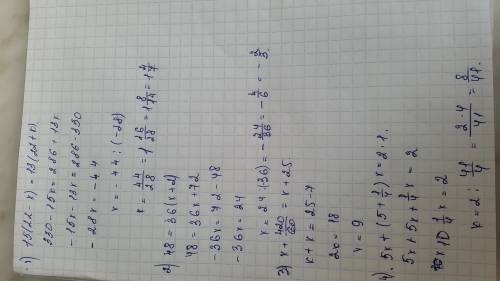 1) 15(22-x)=13(22+x).
330-15x=286+13x
-15x-13x=286-330
-28x=-44
x=-44:(-28)
x=44/28=1 16/28=1 8/14=1 4/7
2) 48=36(x+2)
48=36x+72
-36x=72-48
-36x=24
x=24:(36)=-24/36=-4/6=-2/3.
3) x+420/60=x+25
x+x=25-7
2x=18
x=9
4). 5x+(5+1/4)x=2·1.
5x+5x+1/4x=2
10 1/4x=2
x=2:41/4=2·4/41=8/41.